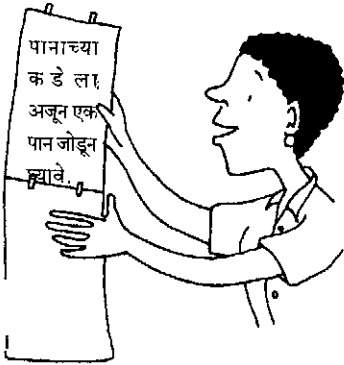 पानाच्या
कडेला
अजून एक
पान जोडून
घ्यावे.